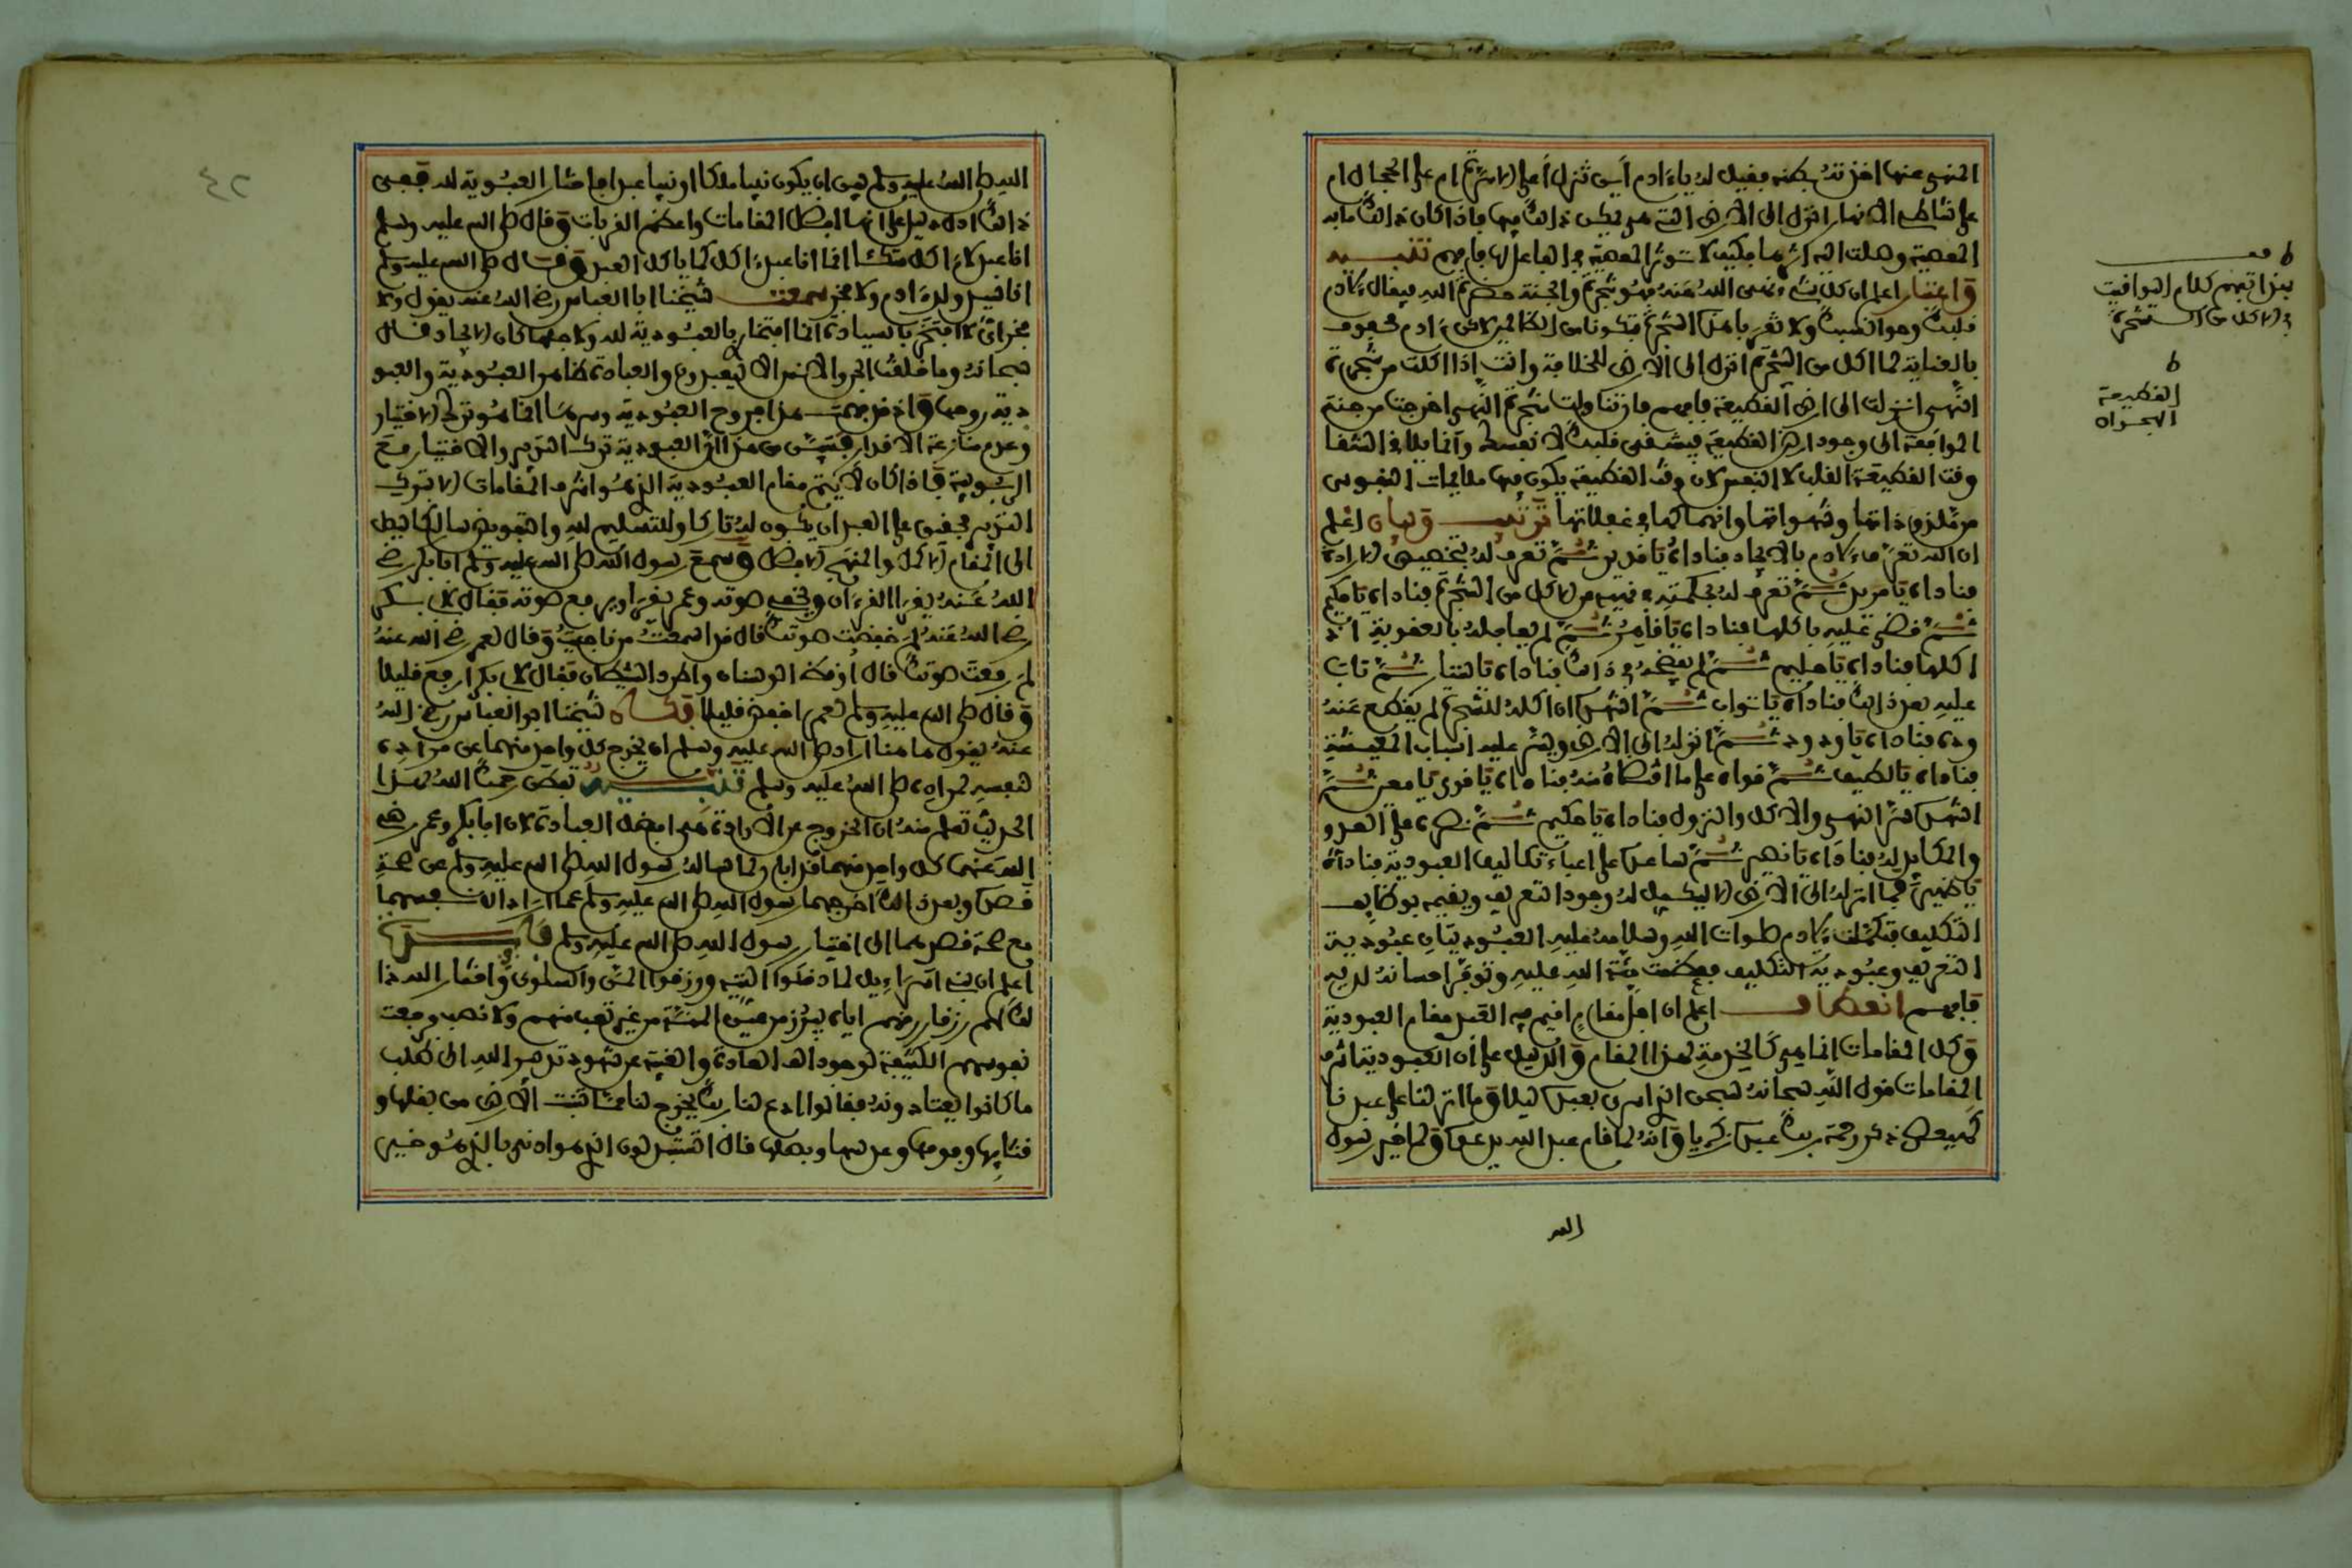 المنهي عنها اخذته بطنه فقيل له يا ءادم أين تنزل أعلى الاسرة ام على الحجال ام
على شاطئ الانهار انزل الى الارض التي هي يمكن ذالك فيها فاذا كان ذالك ما به
المعصية وصلت اليه اثرها فكيف لا تؤثر المعصية في الفاعل لها فافهم تنبيه
واعتبار اعلم ان كل شيء نهى الله عنه فهو شجرة والجنة حضرة الله فيقال لءادم
قلبك وحواء نفسك ولا تقربا هذه الشجرة فتكونا من الظالمين لاكن ءادم محفوف
بالعناية لما اكل من الشجرة انزل الى الارض للخلافة وانت اذا اكلت من شجرة
النهي انزلت الى ارض القطيعة فافهم فان تناولت شجرة النهي اخرجت من جنة
الموافقة الى وجود ارض القطيعة فيشقى قلبك لا نفسك وانما يلاقي الشقا
وقت القطيعة القلب لا النفس لان وقت القطيعة يكون فيها ملايمات النفوس
من ملذوذاتها وشهواتها وانهماكها في غفلاتها ترتيب وبيان اعلم
ان الله تعرف لءادم بالايجاد فناداه يا قدير ثم تعرف له بتخصيص الارادة
فناداه يا مريد ثم تعرف له بحكمته في نهيه عن الاكل من الشجرة فناداه يا حكيم
ثم قضى عليه باكلها فناداه يا قاهر ثم لم يعاجله بالعقوبة اذ
اكلها فناداه يا حليم ثم لم يفضحه في ذالك فناداه يا ستار ثم تاب
عليه بعد ذالك فناداه يا تواب ثم اشهده ان اكله للشجرة لم يقطع عنه
وده فناداه يا ودود ثم انزله الى الارض ويسر عليه اسباب المعيشة
فناداه يا لطيف ثم قواه على ما اقتضاه منه فناداه يا قوي يا معين ثم
اشهده سر النهي والاكل والنزول فناداه يا حكيم ثم نصره على العدو
والمكايد له فناداه يا نصير ثم ساعده على اعباء تكاليف العبودية فناداه
يا ظهير فما انزله الى الارض الا ليكمل له وجود التعريف ويقيمه بوظايف
التكليف فتكملت لءادم صلوات الله وسلامه عليه العبوديتان عبودية
التعريف وعبودية التكليف فعظمت منة الله عليه وتوفر احسانه لديه
فافهم انعطاف اعلم ان اجل مقام اقيم فيه العبد مقام العبودية
وكل المقامات انما هي كالخدمة لهذا المقام والدليل على أن العبودية اشرف
المقامات قول الله سبحانه سبحن الذي اسرى بعبده ليلا وما انزلنا على عبدنا
كهيعص ذكر رحمة ربك عبده زكرياء وانه لما قام عبد الله يدعوه ولما خير رسول
الله
ط قف
بهذا تفهم كلام اليواقيت
في الاكل من الشجرة
ط
القطيعة
الهجران
الله صلى الله عليه وسلم بين ان يكون نبيا ملكا او نبيا عبدا فاختار العبودية لله ففي
ذالك ادل دليل على انها افضل المقامات واعظم القربات وقال صلى الله عليه وسلم
انا عبد لا ءاكل متكئا انما انا عبد ءاكل كما ياكل العبد وقال صلى الله عليه وسلم
انا سيد ولد ءادم ولا فخر سمعت شيخنا ابا العباس رضي الله عنه يقول ولا
فخر اي لا افتخر بالسيادة انما افتخاري بالعبودية لله ولاجلها كان الايجاد قال
سبحانه وما خلقت الجن والانس الا ليعبدون والعبادة ظاهر العبودية والعبو
دية روحها واذ قد فهمت هذا فروح العبودية وسرها انما هو ترك الاختيار
وعدم منازعة الاقدار فتبين من هذا ان العبودية ترك التدبير والاختيار مع
الربوبية فاذا كان لا يتم مقام العبودية الذي هو اشرف المقامات الا بترك
التدبير فحقيق على العبد ان يكون له تاركا وللتسليم لله والتفويض سالكا ليصل
الى المقام الاكمل والمنهج الافضل وسمع رسول الله صلى الله عليه وسلم ابا بكر رضي
الله عنه يقرا القرءان ويخفي صوته وعمر يقرا ويرفع صوته فقال لابي بكر
رضي الله عنه لم خفضت صوتك قال قد اسمعت من ناجيت وقال لعمر رضي الله عنه
لم رفعت صوتك قال أوقظ الوسنان واطرد الشيطان فقال لابي بكر ارفع قليلا
وقال صلى الله عليه وسلم لعمر اخفض قليلا فكان شيخنا ابو العباس رضي الله
عنه يقول هاهنا اراد صلى الله عليه وسلم ان يخرج كل واحد منهما عن مراده
لنفسه لمراده صلى الله عليه وسلم تنبيه تفطن رحمك الله لهذا
الحديث تعلم منه ان الخروج عن الارادة هي افضل العبادة لان ابا بكر وعمر رضي
الله عنهما كل واحد منهما قد ابان لما ساله رسول الله صلى الله عليه وسلم عن صحة
قصده وبعد ذالك اخرجهما رسول الله صلى الله عليه وسلم عما ارادا لانفسهما
مع صحة قصدهما الى اختيار رسول الله صلى الله عليه وسلم فايدة
اعلم ان بني اسراءيل لما دخلوا التيه ورزقوا المن والسلوى واختار الله ذا
لك لهم رزقا رزقهم اياه يبرز من عين المنة من غير تعب منهم ولا نصب فرجعت
نفوسهم الكثيفة لوجود الف العادة والغيبة عن شهود تدبير الله الى طلب
ما كانوا يعتادونه فقالوا ادع لنا ربك يخرج لنا مما تنبت الارض من بقلها و
قثايها وفومها وعدسها وبصلها قال اتستبدلون الذي هو ادنى بالذي هو خير